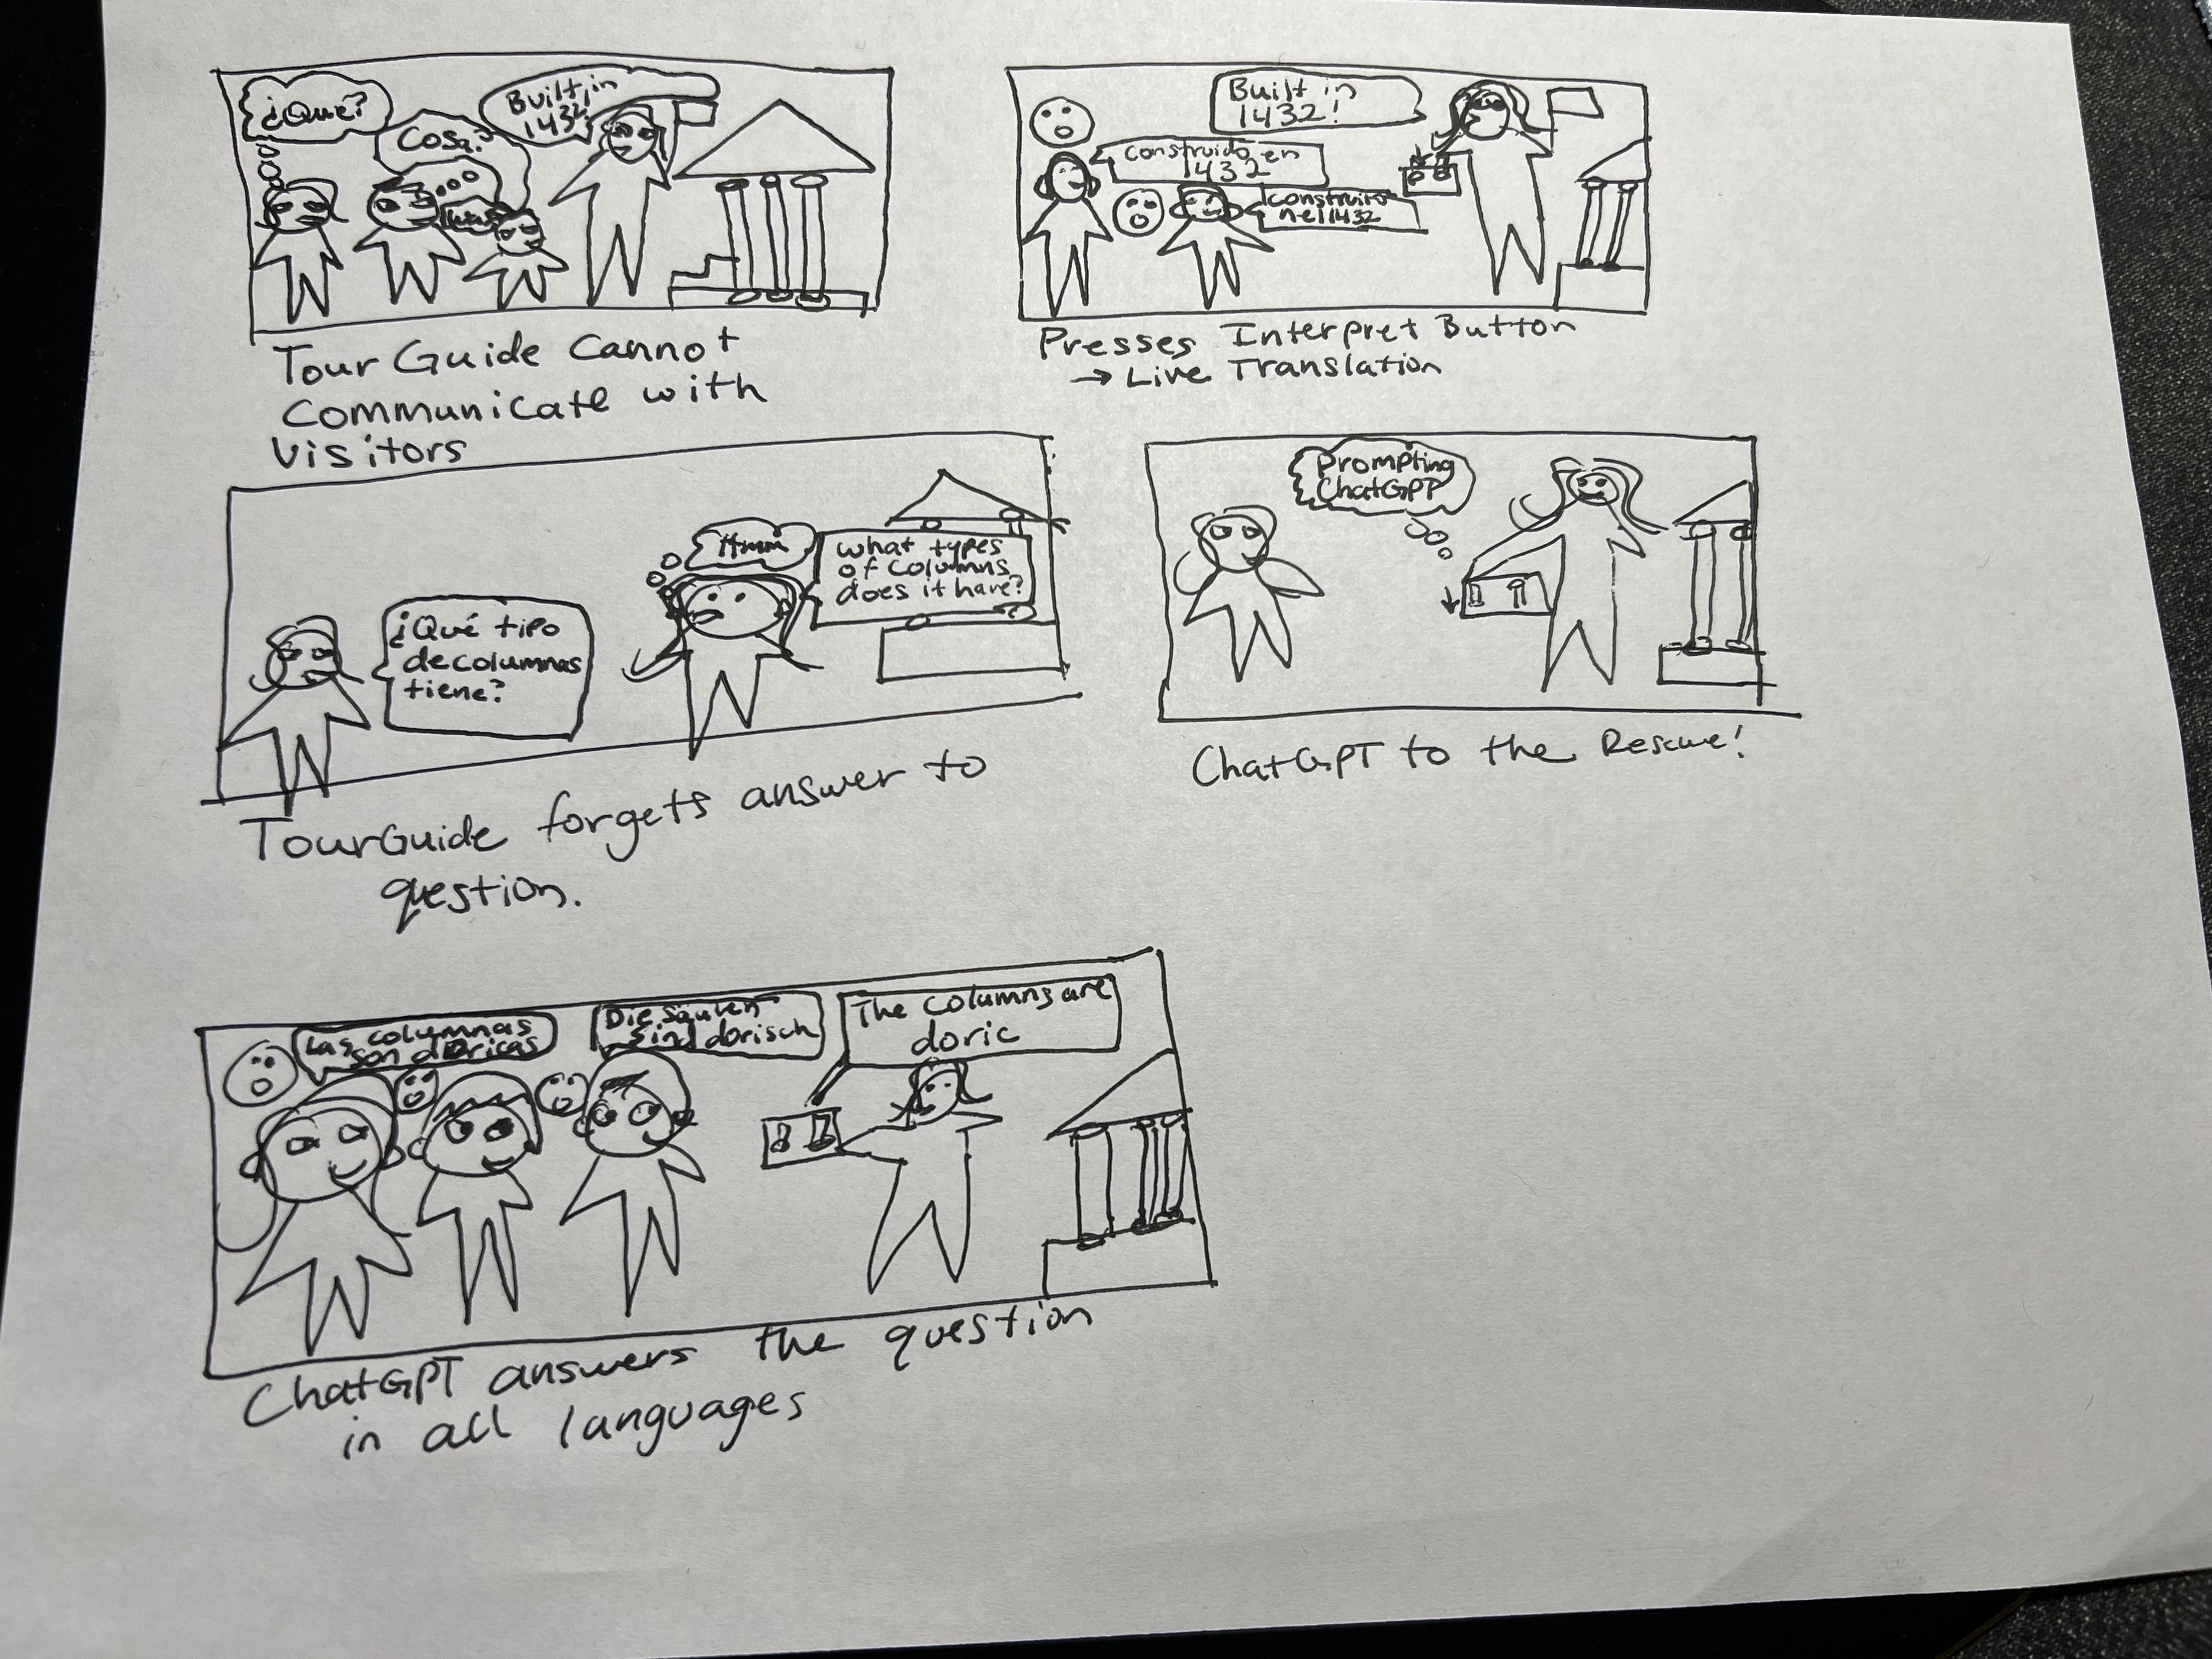 ¿Que?
Cosa?
...
was
Built in
1432!
Tour Guide Cannot
Communicate with
Visitors
Built in
1432!
construido en
1432
construito
nel 1432
Presses Interpret Button
→ Live Translation
¿Qué tipo
de columnas
tiene?
Hmm
what types
of columns
does it have?
TourGuide forgets answer to
question.
Prompting
ChatGPT
ChatGPT to the Rescue!
Las columnas
son doricas
Die Säulen
sind dorisch
The columns are
doric
ChatGPT answers the question
in all languages